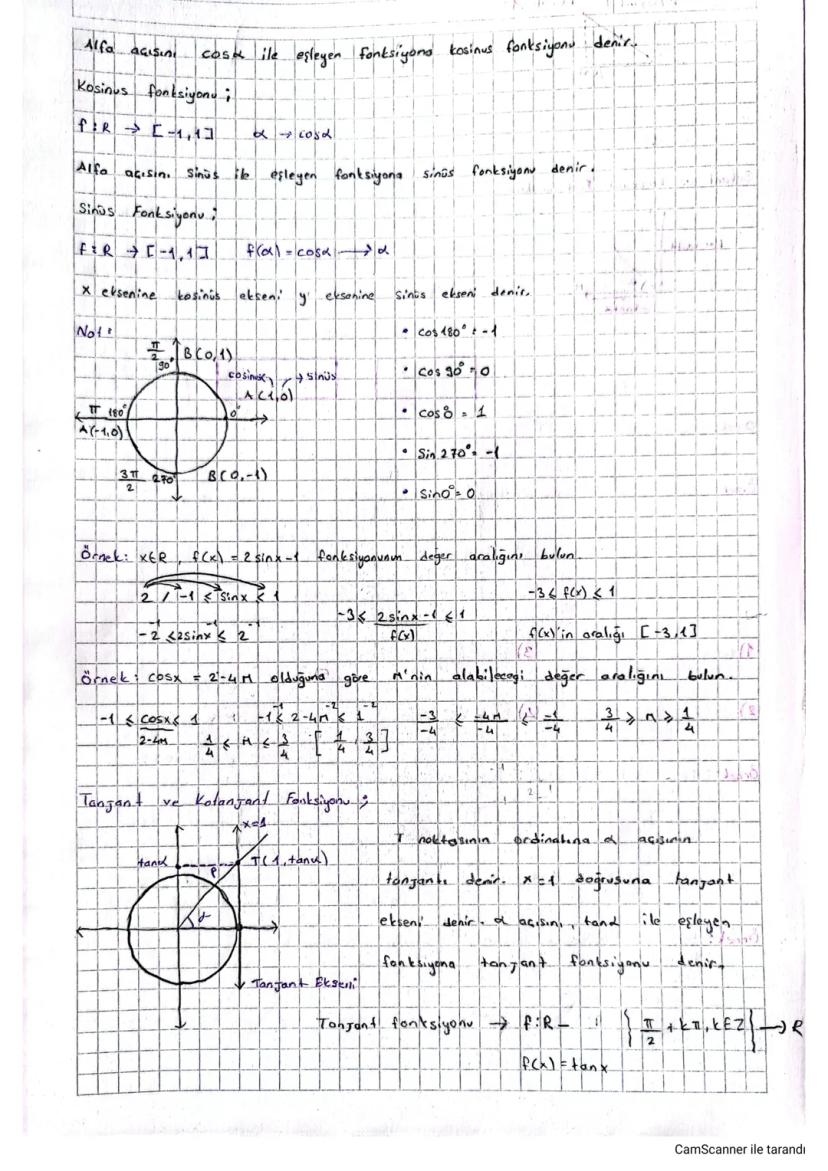 Alfa açısını cosα ile eşleyen fonksiyona kosinus fonksiyonu denir.
Kosinus fonksiyonu ;
f : R → [-1,1] α → cosα
Alfa açısını Sinüs ile eşleyen fonksiyona sinüs fonksiyonu denir.
Sinüs Fonksiyonu ;
f : R → [-1,1] f(α) = cosα → α
x eksenine kosinüs ekseni y eksenine sinüs ekseni denir.
Not:
π/2 90° B(0,1)
cosinüs → sinüs
A(1,0)
π 180° 0°
A(-1,0)
3π/2 270° B(0,-1)
• cos180° = -1
• cos90° = 0
• cos0° = 1
• Sin270° = -1
• sin0° = 0
Örnek: x∈R, f(x) = 2sinx-1 fonksiyonunun değer aralığını bulun.
2 / -1 ≤ sinx ≤ 1
-2 -1 ≤ 2sinx -1 ≤ 2 -1
-3 ≤ 2sinx-1 ≤ 1
f(x)
-3 ≤ f(x) ≤ 1
f(x)'in aralığı [-3,1]
Örnek: cosx = 2-4M olduğuna göre M'nin alabileceği değer aralığını bulun.
-1 ≤ cosx ≤ 1 -1 -2 ≤ 2-4M -2 ≤ 1 -2 -3/-4 ≤ -4M/-4 ≤ -1/-4 3/4 ≥ M ≥ 1/4
2-4M 1/4 ≤ M ≤ 3/4 [1/4, 3/4]
Tanjant ve Kotanjant Fonksiyonu ;
x=1
tanα T(1,tanα)
P
α
Tanjant Ekseni
T noktasının ordinatına α açısının
tanjantı denir. x=1 doğrusuna tanjant
ekseni denir. α açısını, tanα ile eşleyen
fonksiyona tanjant fonksiyonu denir.
Tanjant fonksiyonu → f : R - {π/2 + kπ, k∈Z} → R
f(x) = tanx
CamScanner ile tarandı